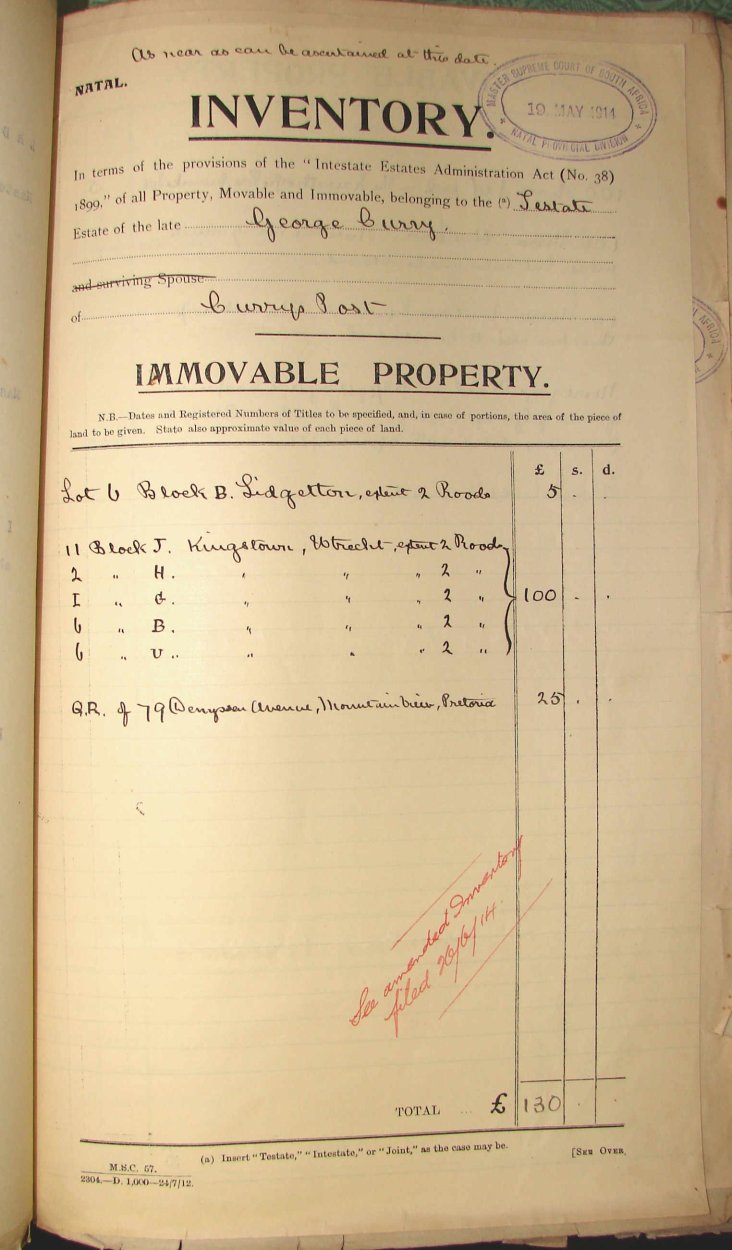 As near as can be ascertained at this date.
NATAL.
MASTER SUPREME COURT OF SOUTH AFRICA
19 MAY 1914
NATAL PROVINCIAL DIVISION
INVENTORY.
In terms of the provisions of the "Intestate Estates Administration Act (No. 38)
1899," of all Property, Movable and Immovable, belonging to the (a) Testate
Estate of the late George Curry.
and surviving Spouse
of Currys Post
IMMOVABLE PROPERTY.
N.B.—Dates and Registered Numbers of Titles to be specified, and, in case of portions, the area of the piece of
land to be given. State also approximate value of each piece of land.
£ s. d.
Lot 6 Block B. Lidgetton, extent 2 Roods 5 . .
11 Block J. Kingstown, Utrecht, extent 2 Roods
2 " H. " " " 2 "
1 " G. " " " 2 " 100 - .
6 " B. " " " 2 "
6 " U. " " " 2 "
Q.R. of 79 Denyssen Avenue, Mountain View, Pretoria 25 . .
See amended Inventory
filed 26/6/14.
TOTAL ... £ 130 . .
(a) Insert "Testate," "Intestate," or "Joint," as the case may be.
[SEE OVER.
M.S.C. 57.
2304.—D. 1,000—24/7/12.